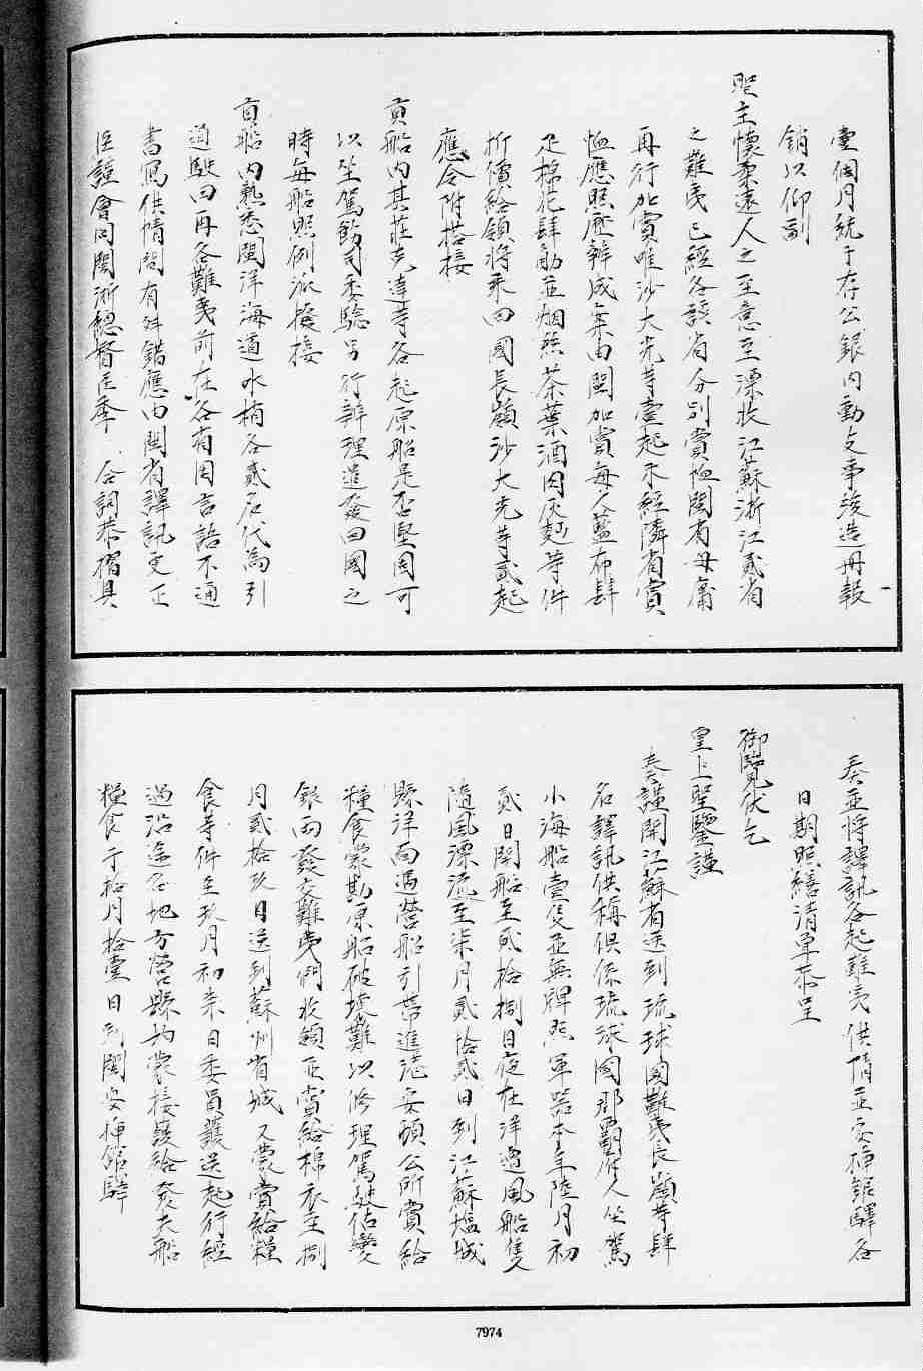 壹個月統于存公銀內動支事竣造冊報
銷以仰副
聖主懷柔遠人之至意至漂收江蘇浙江貳省
之難夷已經各該省分別賞恤閩省毋庸
再行加賞唯沙大光等壹起未經隣省賞
恤應照歷辦成案由閩加賞每人藍布肆
疋棉花肆觔並烟絲茶葉酒肉灰麪等件
折價給領將來回國長嶺沙大光等貳起
應令附搭接
貢船內其莊克達等各起原船是否堅固可
以坐駕飭司委驗另行辦理遣發回國之
時每船照例派撥接
貢船內熟悉閩洋海道水梢各貳名代為引
道駛回再各難夷前在各省因言語不通
書寫供情間有舛錯應由閩省譯訊更正
臣謹會同閩浙總督臣季 合詞恭摺具
奏並將譯訊各起難夷供情並安插館驛各
日期照繕清單恭呈
御覽伏乞
皇上聖鑒謹
奏謹開江蘇省送到琉球國難夷長嶺等肆
名譯訊供稱俱係琉球國那霸府人坐駕
小海船壹隻並無牌照軍器本年陸月初
貳日開船至貳拾捌日夜在洋遭風船隻
隨風漂流至柒月貳拾貳日到江蘇塩城
縣洋面遇營船引帶進港安頓公所賞給
糧食蒙勘原船破壞難以修理駕駛估變
銀兩發交難夷們收領正賞給棉衣至捌
月貳拾玖日送到蘇州省城又蒙賞給糧
食等件至玖月初柒日委員護送起行經
過沿途各地方營縣均蒙接護給發夫船
糧食于拾月拾壹日到閩安插館驛
7974